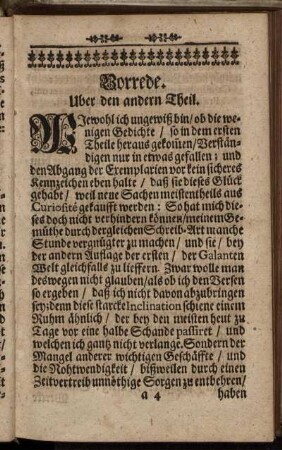 Vorrede.
Uber den andern Theil.
WIewohl ich ungewiß bin / ob die we-
nigen Gedichte / so in dem ersten
Theile heraus gekom̃en / Verstän-
digen nur in etwas gefallen; und
den Abgang der Exemplarien vor kein sicheres
Kennzeichen eben halte / daß sie dieses Glück
gehabt / weil neue Sachen meistentheils aus
Curiosité gekaufft werden: So hat mich die-
ses doch nicht verhindern können / meinem Ge-
müthe durch dergleichen Schreib-Art manche
Stunde vergnügter zu machen / und sie / bey
der andern Auflage der ersten / der Galanten
Welt gleichfalls zu lieffern. Zwar wolle man
deswegen nicht glauben / als ob ich den Versen
so ergeben / daß ich nicht davon abzubringen
sey: denn diese starcke Inclination schiene einem
Ruhm ähnlich / der bey den meisten heut zu
Tage vor eine halbe Schande passiret / und
welchen ich gantz nicht verlange. Sondern der
Mangel anderer wichtigen Geschäffte / und
die Nohtwendigkeit / bißweilen durch einen
Zeitvertreib unnöthige Sorgen zu entbehren /
a 4 haben